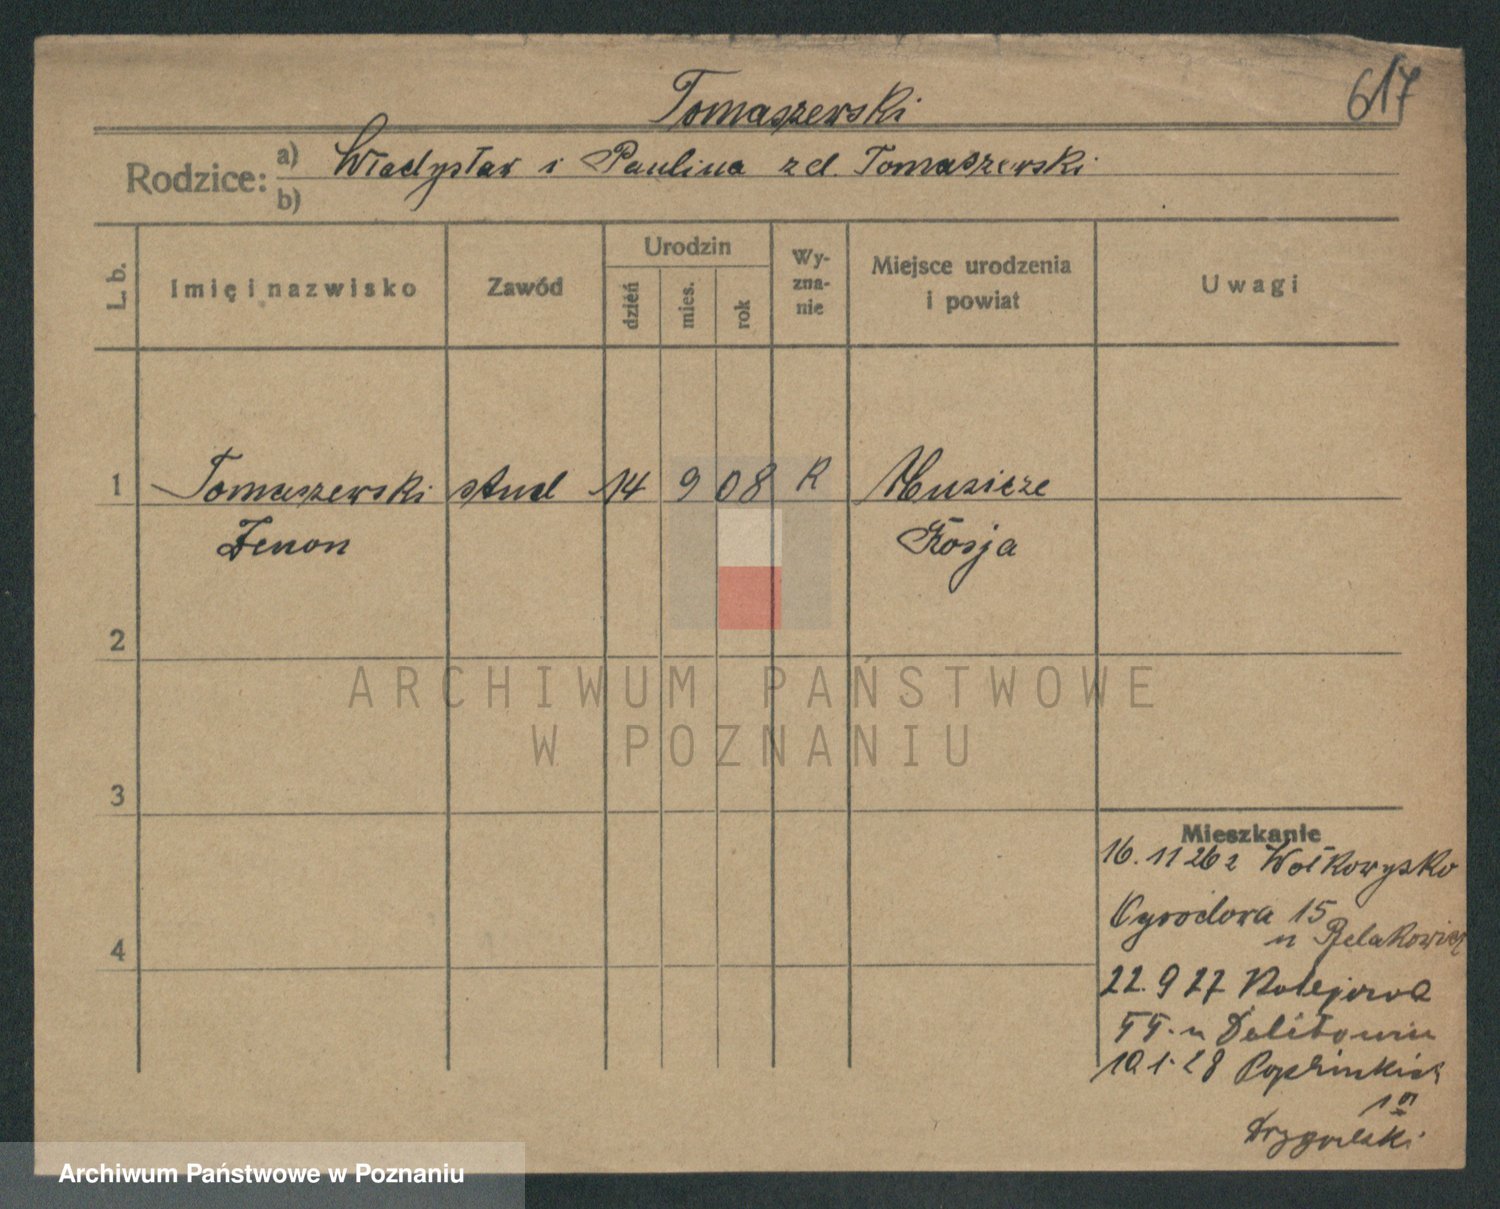 617
Tomaszewski
Rodzice: a) Władysław i Paulina zd. Tomaszewski
b)
L. b. Imię i nazwisko Zawód Urodzin dzień mies. rok Wy-zna-nie Miejsce urodzenia i powiat Uwagi
1 Tomaszewski stud 14 9 08 R
Zenon Rosja
2
3
4
ARCHIWUM PAŃSTWOWE
W POZNANIU
Mieszkanie
16. 11 26 z Wołkowysko
Ogrodowa 15
u
22. 9 27 Kolejowa
u
10. 1. 28
Archiwum Państwowe w Poznaniu